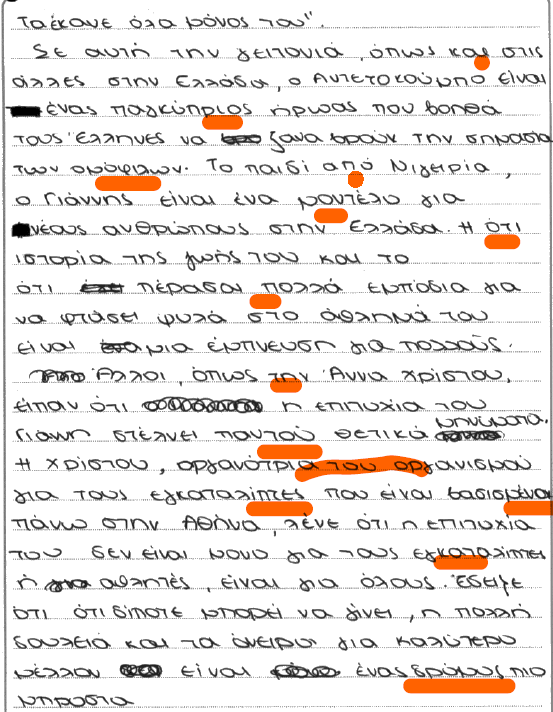 Τα έκανε όλα μόνος του".
Σε αυτή την γειτονιά, όπως και στις
άλλες στην Ελλάδα, ο Αντετοκούμπο είναι
ένας παγκύπριος ήρωας που βοηθά
τους Έλληνες να ξανα βρούν την σημασία
των ομόφιλων. Το παιδί από Νιγειρία,
ο Γιάννης είναι ένα μοντέλο για
νέους ανθρώπους στην Ελλάδα. Η ότι
ιστορία της ζωής του και το
ότι πέρασαι πολλά εμπόδια για
να φτάσει ψυλά στο άθλημά του
είναι μια έμπνευση για πολλούς.
Άλλοι, όπως την Άννα Χρίστου,
είπαν ότι η επιτυχία του
Γιάννη στέλνει παντού θετικά μηνύματα.
Η Χρίστου, οργανότρια του οργανισμού
για τους εγκαταλίπτες που είναι βασισμένα
πάνω στην Αθήνα, λένε ότι η επιτυχία
του δεν είναι μονο για τους εγκαταλίπτες
ή αθλητές, είναι για όλους. Έδειξε
ότι ότιδίποτε μπορεί να γίνει, η πολλή
δουλειά και τα όνειρα για καλύτερο
μέλλον είναι ένας δρόμους πιο
μπροστα